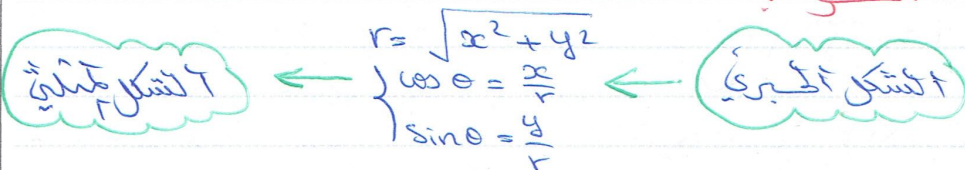 الشكل الجبري
r = √x² + y²
cos θ = x/r
sin θ = y/r
الشكل المثلثي